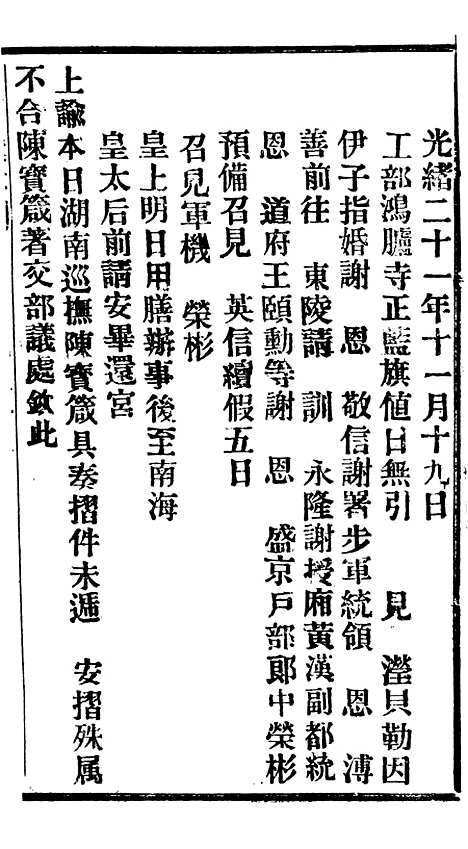 光緒二十一年十一月十九日
工部鴻臚寺正藍旗値日無引 見 瀅貝勒因
伊子指婚謝 恩 敬信謝署步軍統領 恩 溥
善前往 東陵請 訓 永隆謝授廂黃漢副都統
恩 道府王頤勳等謝 恩 盛京戶部郞中榮彬
預備召見 英信續假五日
召見軍機 榮彬
皇上明日用膳辦事後至南海
皇太后前請安畢還宮
上諭本日湖南巡撫陳寳箴具奏摺件未遞 安摺殊属
不合陳寳箴著交部議處欽此